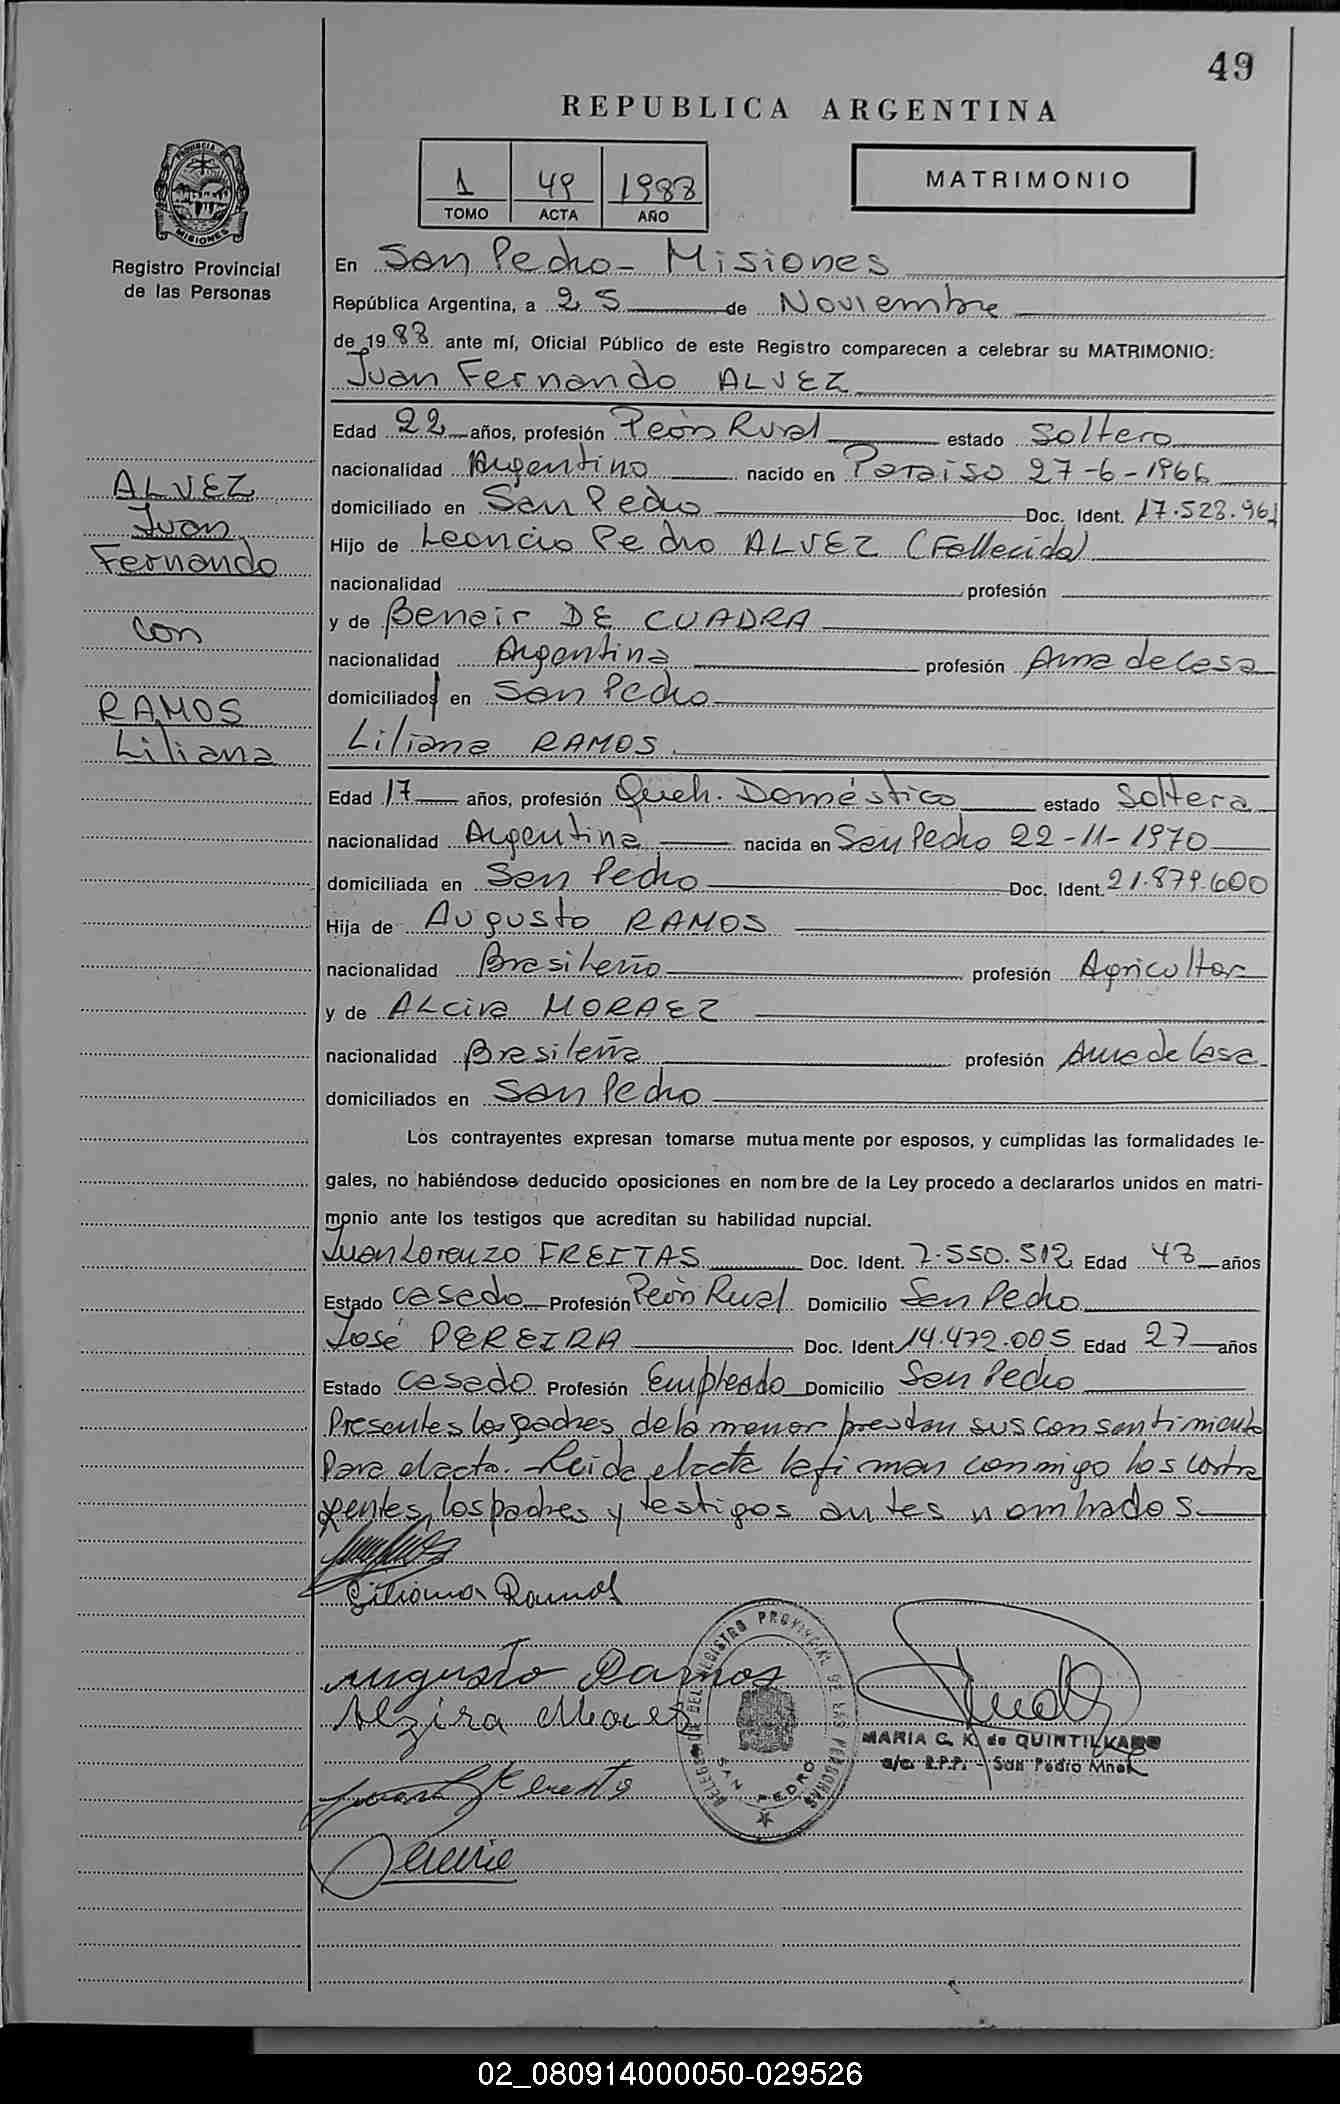 49
REPUBLICA ARGENTINA
1 49 1988
TOMO ACTA AÑO
MATRIMONIO
PROVINCIA DE MISIONES
Registro Provincial
de las Personas
En San Pedro - Misiones
República Argentina, a 25 de Noviembre
de 1988 ante mí, Oficial Público de este Registro comparecen a celebrar su MATRIMONIO:
Juan Fernando ALVEZ
Edad 22 años, profesión Peón Rural estado Soltero
nacionalidad Argentino nacido en Paraiso 27-6-1966
domiciliado en San Pedro Doc. Ident. 17.528.961
Hijo de Leoncio Pedro ALVEZ (Fallecido)
nacionalidad profesión
y de Benair DE CUADRA
nacionalidad Argentina profesión Ama de Casa
domiciliados en San Pedro
ALVEZ
Juan
Fernando
con
RAMOS
Liliana
Liliana RAMOS.
Edad 17 años, profesión Queh. Doméstico estado Soltera
nacionalidad Argentina nacida en San Pedro 22-11-1970
domiciliada en San Pedro Doc. Ident. 21.879.600
Hija de Augusto RAMOS
nacionalidad Brasileño profesión Agricultor
y de ALcira MORAEZ
nacionalidad Brasileña profesión Ama de Casa
domiciliados en San Pedro
Los contrayentes expresan tomarse mutuamente por esposos, y cumplidas las formalidades le-
gales, no habiéndose deducido oposiciones en nombre de la Ley procedo a declararlos unidos en matri-
monio ante los testigos que acreditan su habilidad nupcial.
Juan Lorenzo FREITAS Doc. Ident. 7.550.512 Edad 43 años
Estado Casado Profesión Peón Rural Domicilio San Pedro
José PEREIRA Doc. Ident 14.472.005 Edad 27 años
Estado Casado Profesión Empleado Domicilio San Pedro
Presentes los padres de la menor prestan sus consentimiento
para el acto. Leida el acta la firman conmigo los contra
yentes, los padres y testigos antes nombrados
Liliana Ramos
Augusto Ramos
Alzira Moraes
DELEGACION DEL REGISTRO PROVINCIAL DE LAS PERSONAS
SAN PEDRO
MARIA C. K. de QUINTILKANO
a/c. R.P.P. - San Pedro Mnes.
02_080914000050-029526